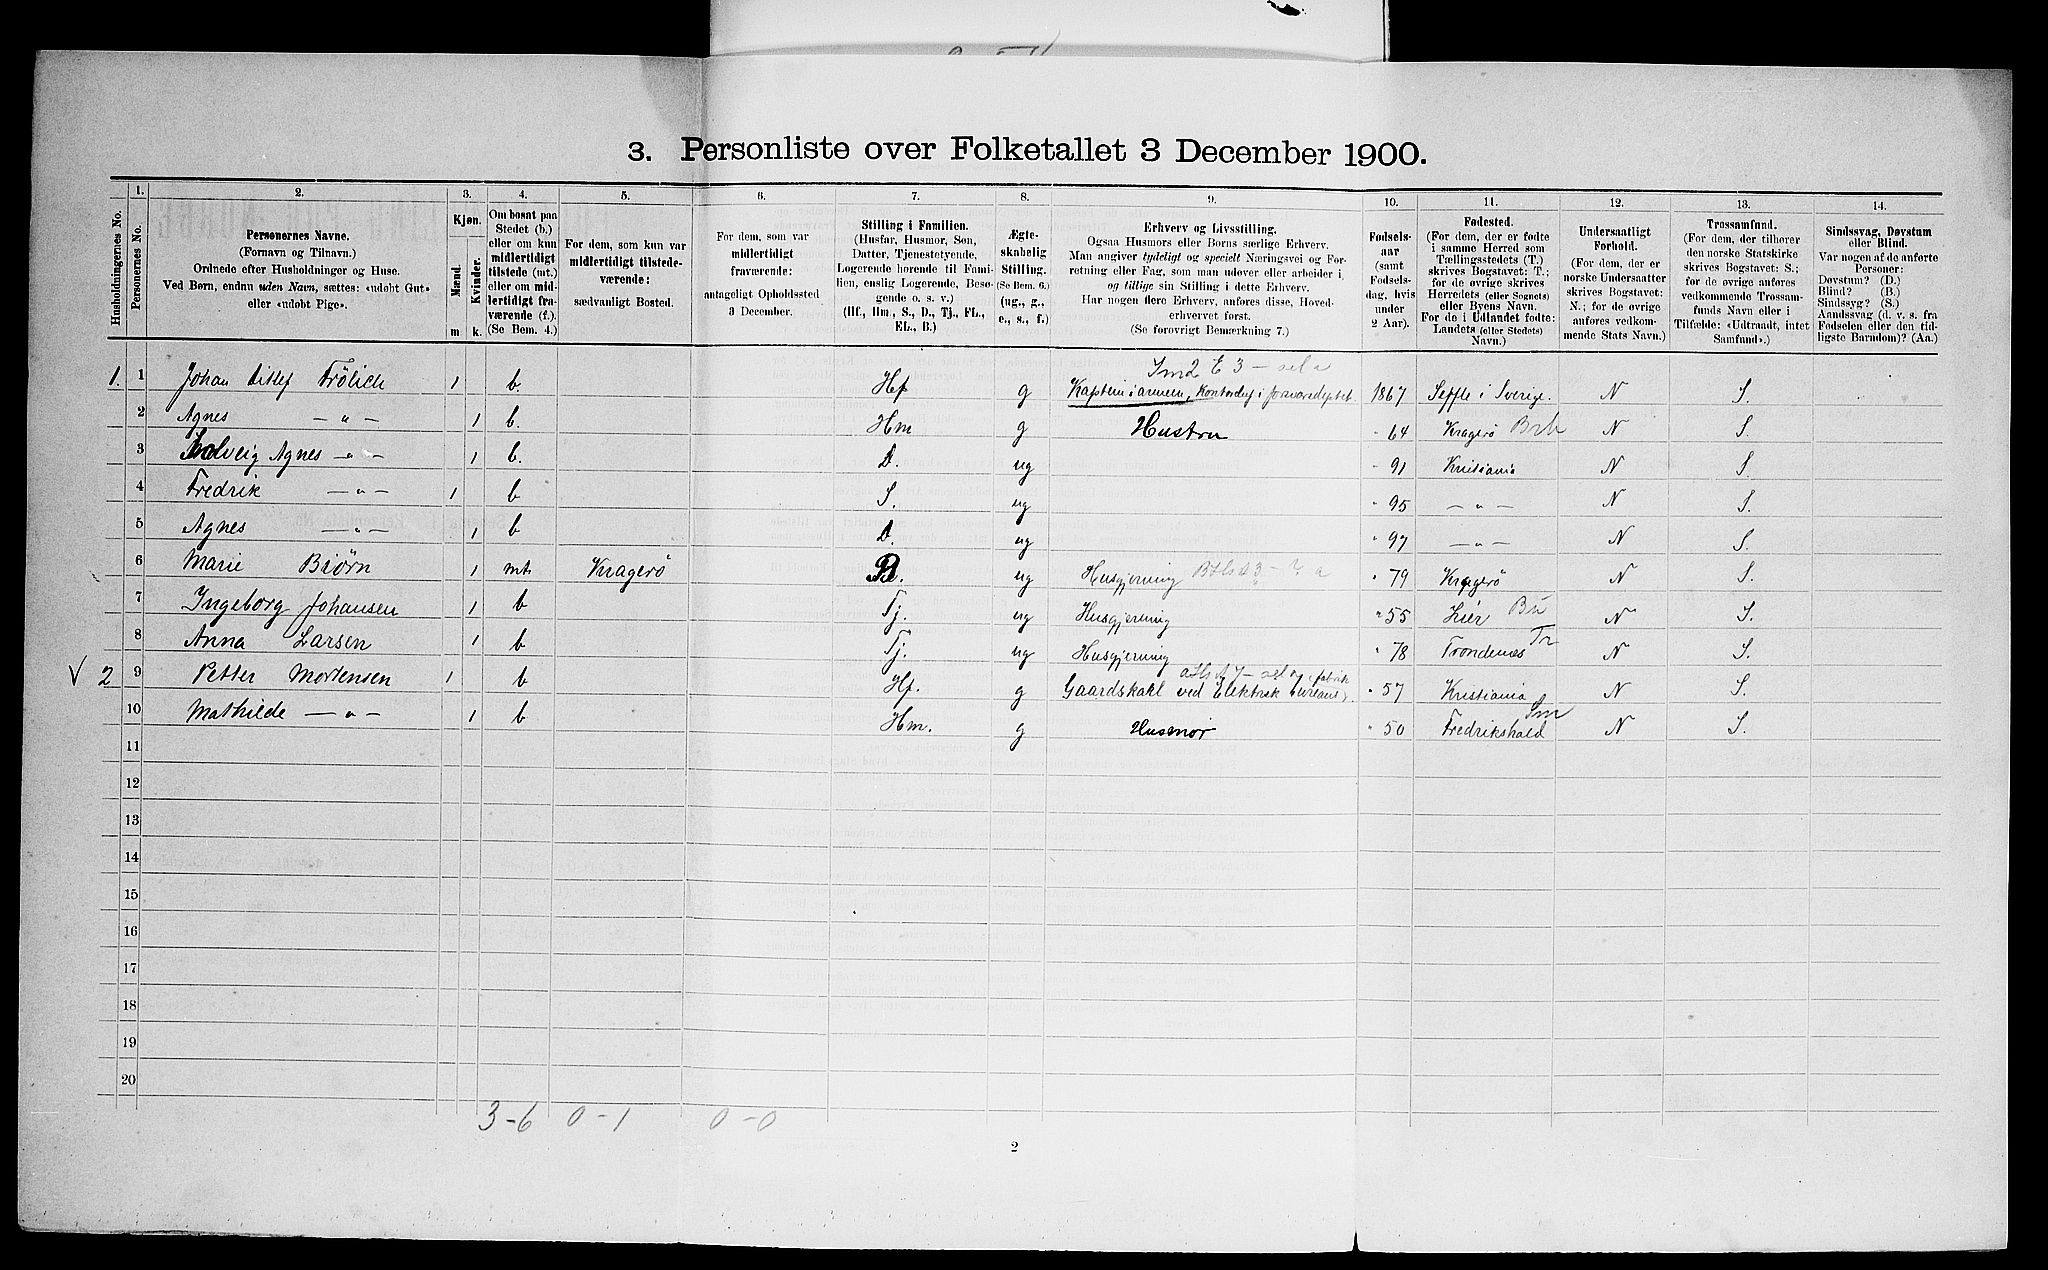 3. Personliste over Folketallet 3 December 1900.
1. 2. 3. 4. 5. 6. 7. 8. 9. 10. 11. 12. 13. 14.
Husholdningernes No.
Personernes No.
Personernes Navne.
(Fornavn og Tilnavn.)
Ordnede efter Husholdninger og Huse.
Ved Børn, endnu uden Navn, sættes: «udøbt Gut»
eller «udøbt Pige».
Kjøn.
Mænd. Kvinder.
m. k.
Om bosat paa
Stedet (b.)
eller om kun
midlertidigt
tilstede (mt.)
eller om mid-
lertidigt fra-
værende (f.).
(Se Bem. 4.)
For dem, som kun var
midlertidigt tilstede-
værende:
sædvanligt Bosted.
For dem, som var
midlertidigt
fraværende:
antageligt Opholdssted
3 December.
Stilling i Familien.
(Husfar, Husmor, Søn,
Datter, Tjenestetyende,
Logerende hørende til Fami-
lien, enslig Logerende, Besø-
gende o. s. v.)
(Hf., Hm., S., D., Tj., FL.,
EL., B.)
Ægte-
skabelig
Stilling.
(Se Bem. 6.)
(ug., g.,
e., s., f.)
Erhverv og Livsstilling.
Ogsaa Husmors eller Børns særlige Erhverv.
Man angiver tydeligt og specielt Næringsvei og For-
retning eller Fag, som man udøver eller arbeider i,
og tillige sin Stilling i dette Erhverv.
Har nogen flere Erhverv, anføres disse, Hoved-
erhvervet først.
(Se forøvrigt Bemærkning 7.)
Fødsels-
aar
(samt
Fødsels-
dag, hvis
under
2 Aar).
Fødested.
(For dem, der er fødte
i samme Herred som
Tællingsstedets (T.)
skrives Bogstavet: T.;
for de øvrige skrives
Herredets (eller Sognets)
eller Byens Navn.
For de i Udlandet fødte:
Landets (eller Stedets)
Navn.)
Undersaatligt
Forhold.
(For dem, der er
norske Undersaatter
skrives Bogstavet:
N.; for de øvrige
anføres vedkom-
mende Stats Navn.)
Trossamfund.
(For dem, der tilhører
den norske Statskirke
skrives Bogstavet: S.;
for de øvrige anføres
vedkommende Trossam-
funds Navn eller i
Tilfælde: «Udtraadt, intet
Samfund».)
Sindssvag, Døvstum
eller Blind.
Var nogen af de anførte
Personer:
Døvstum? (D.)
Blind? (B.)
Sindssyg? (S.)
Aandssvag (d. v. s. fra
Fødselen eller den tid-
ligste Barndom)? (Aa.)
1. 1 Johan Ditlef Frölich 1 b Hf g Kaptein i armeen, Kontorchef i forsvarsdeptet. 1867 Seffle i Sverige. N S.
2 Agnes — " — 1 b. Hm g Hustru " 64 Kragerö N S.
3 Solveig Agnes — " — 1 b. D. ug " 91 Kristiania N S.
4 Fredrik — " — 1 b S. ug " 95 — " — N S.
5 Agnes — " — 1 b D. ug " 97 — " — N S.
6 Marie Biörn 1 mt. Kragerö B. ug Husgjerning " 79 Kragerö N S.
7 Ingeborg Johansen 1 b Tj. ug Husgjerning " 55 Lier Bu N S.
8 Anna Larsen 1 b Tj. ug Husgjerning " 78 Trondenæs Tr N S.
V 2 9 Petter Mortensen 1 b Hf. g Gaardskarl ved Elektrisk bureaus fabrik " 57 Kristiania N S.
10 Mathilde — " — 1 b Hm. g Husmor " 50 Fredrikshald Sm N S.
11
12
13
14
15
16
17
18
19
20
3-6 0-1 0-0
2